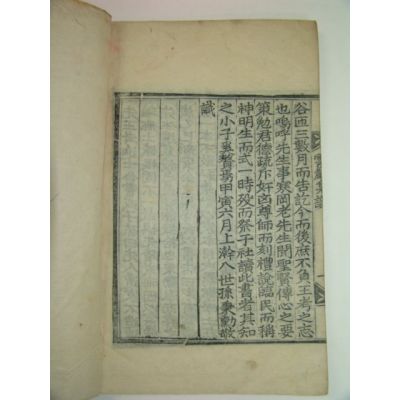 谷匝三數月而告訖今而後庶不負王考之志
也嗚呼先生事寒岡老先生聞聖賢傳心之要
策勉君德疏斥奸凶尊師而刻禮說臨民而稱
神明生而式一時歿而祭子社讀此書者其知
之小子豈贅焉甲寅六月上澣八世孫秉勳敬
識